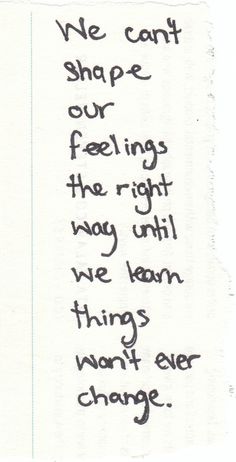 We can't
shape
our
feelings
the right
way until
we learn
things
won't ever
change.